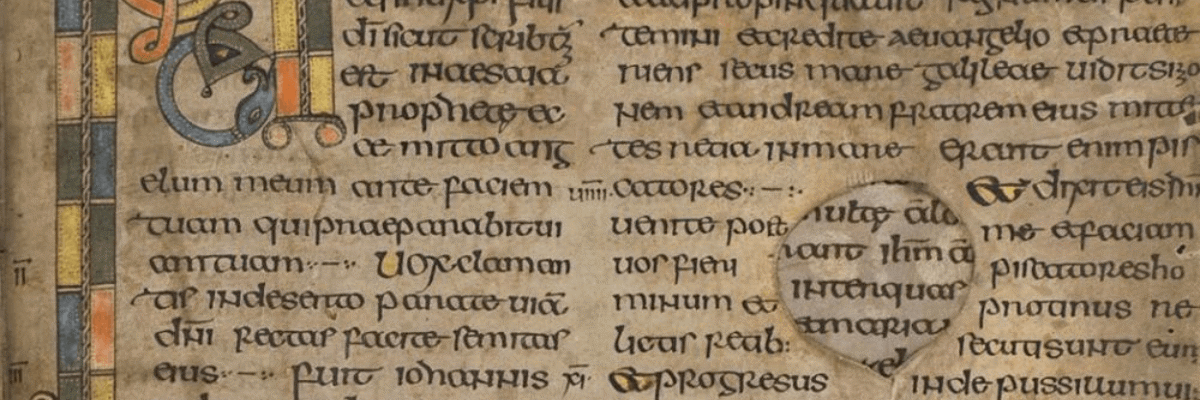 dī sicut scribtū
est in aesaia
propheta ec
ce mitto ang
elum meum ante faciem
tuam qui praeparabit ui
am tuam uox claman
tis in deserto parate uiā
dn̄i rectas facite semitas
eius fuit iohannis xi
temini et credite aeuangelio et praete
riens secus mare galileae uidit simo
nem et andream fratrem eius mitten
tes retia in mare erant enim pis
uiiii catores et dixit eis
uenite post me et faciam
uos fieri piscatores ho
minum et protinus re
lictis retib: secuti sunt eum
et progresus inde pussillum
ihm̄ a
inter quas
maria